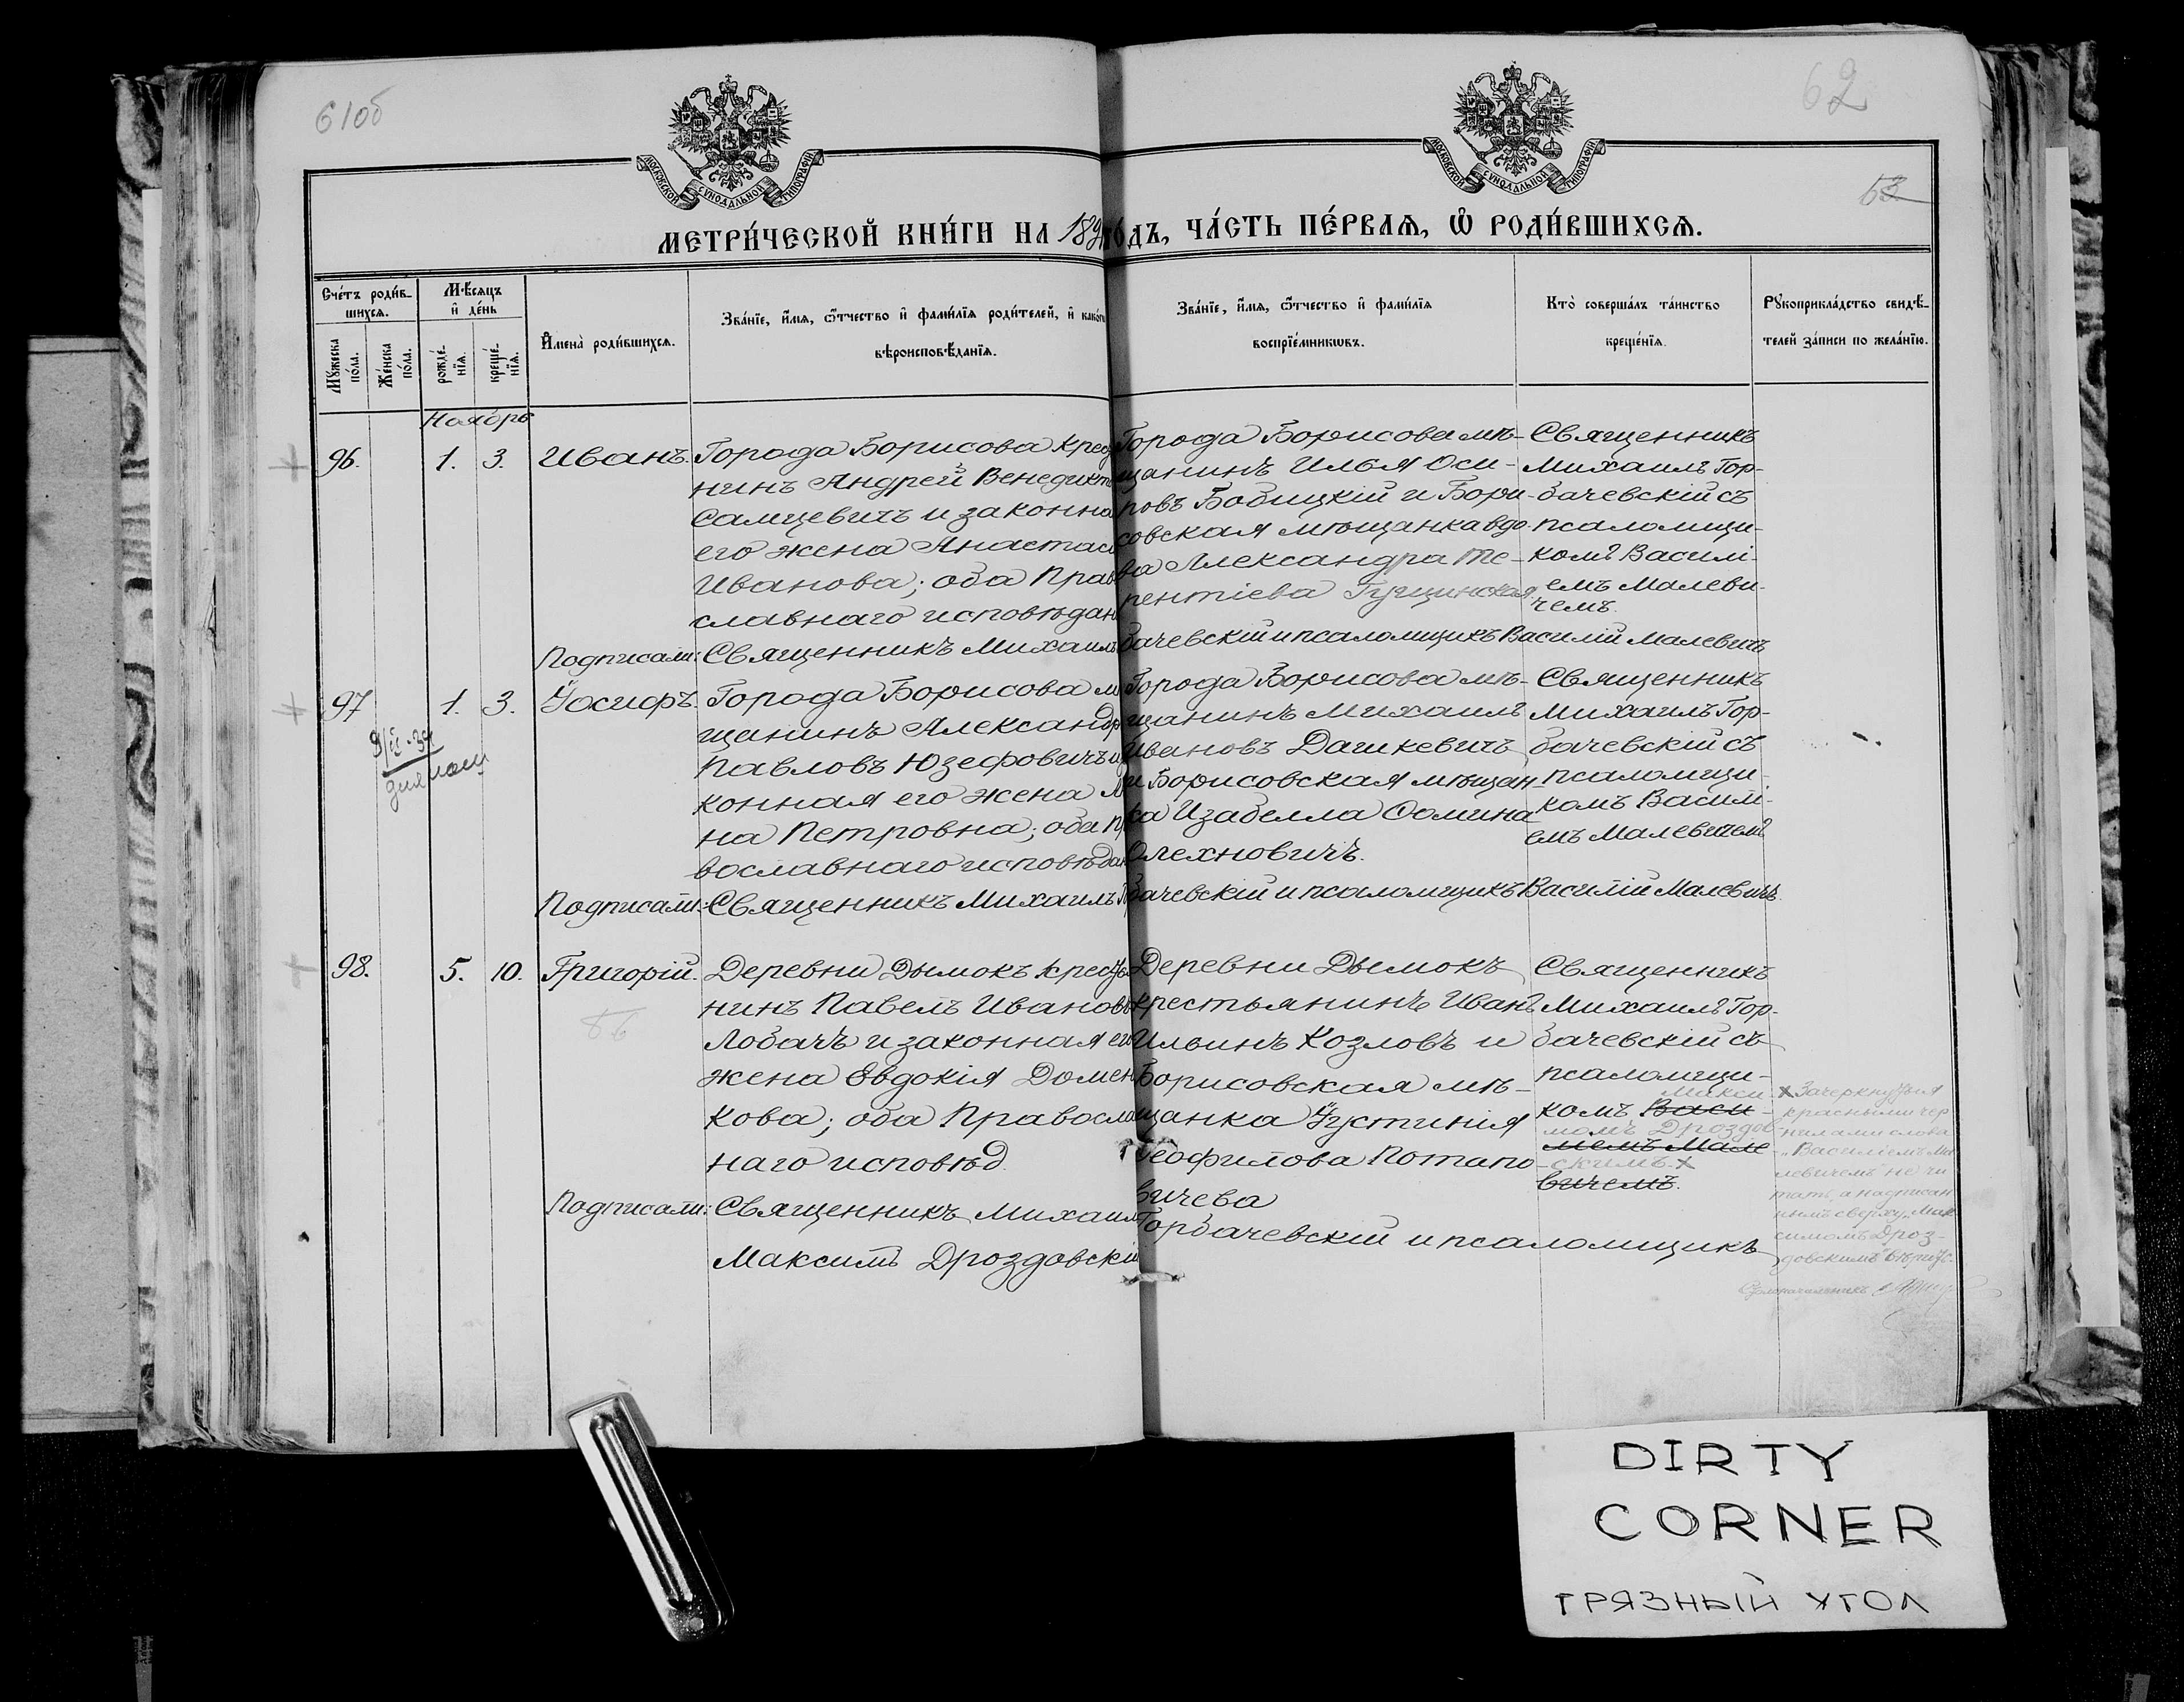 61об
62
53
МОСКОВСКОЙ СѴНОДАЛЬНОЙ ТИПОГРАФІИ
МОСКОВСКОЙ СѴНОДАЛЬНОЙ ТИПОГРАФІИ
МЕТРИ́ЧЕСКОЙ КНИ́ГИ НА 189 ГОДЪ, ЧА́СТЬ ПЕ́РВАѦ, Ѽ РОДИ́ВШИХСѦ.
Сче́тъ роди́в-
шихсѧ.
Мꙋжеска по́ла.
Же́нска по́ла.
Мѣ́сѧцъ
и҆ де́нь
рожде́-
нїѧ.
креще́-
нїѧ.
И҆мена̀ роди́вшихсѧ.
Зва́нїе, и҆́мѧ, ѻ҆́тчество и҆ фами́лїѧ роди́телей, и҆ како́гѡ
вѣроисповѣ́данїѧ.
Зва́нїе, и҆́мѧ, ѻ҆́тчество и҆ фами́лїѧ
воспрїе́мникѡвъ.
Кто̀ соверша́лъ та́инство
креще́нїѧ.
Рꙋкоприкла́дство свидѣ́-
телей за́писи по жела́нїю.
Ноябрь
96.
1. 3.
Иванъ.
Города Борисова крес
нинъ Андрей Венедикт
Самцевичъ и законна
его жена Анастас
Иванова; оба Прав
славнаго исповѣдан
Города Борисова мѣ-
щанинъ Илья Оси-
повъ Бобицкій и Бори-
совская мѣщанка вдо-
ва Александра Те-
рентіева Гущинская.
Священникъ
Михаилъ Гор-
бачевскій съ
псаломщи-
комъ Василі-
емъ Малеви-
чемъ.
Подписали: Священникъ Михаилъ бачевскій и псаломщикъ Василій Малевичъ
97
1. 3.
Іосифъ.
Города Борисова м
щанинъ Александр
Павловъ Юзефовичъ и
конная его жена
на Петровна; оба пр
вославнаго исповѣдан
Города Борисова мѣ-
щанинъ Михаилъ
Ивановъ Дашкевичъ
и Борисовская мѣщан-
ка Изабелла Фомина
Олехновичъ.
Священникъ
Михаилъ Гор-
бачевскій съ
псаломщи-
комъ Василі-
емъ Малевичемъ
Подписали: Священникъ Михаилъ бачевскій и псаломщикъ Василій Малевичъ.
98.
5. 10.
Григорій.
Деревни Дымокъ крес
нинъ Павелъ Ивановъ
Лобачъ и законная ег
жена Евдокія Домен
кова; оба Правосла
наго исповѣд.
Деревни Дымокъ
крестьянинъ Иванъ
Ильинъ Козловъ и
Борисовская мѣ-
щанка Іустинія
Ѳеофилова Потапо-
вичева
Священникъ
Михаилъ Гор-
бачевскій съ
псаломщи-
Макси-
комъ Васи-
момъ Дроздов-
ліемъ Мале
скимъ. х
вичемъ.
х Зачеркнутыя
красными чер
нилами слова
"Василіемъ Ма
левичемъ" не чи
тать, а надписан
нымъ сверху "Мак
симомъ Дроз-
довскимъ"
Подписали: Священникъ Михаилъ Горбачевскій и псаломщикъ
Максимъ Дроздовскій
DIRTY
CORNER
ГРЯЗНЫЙ УГОЛ